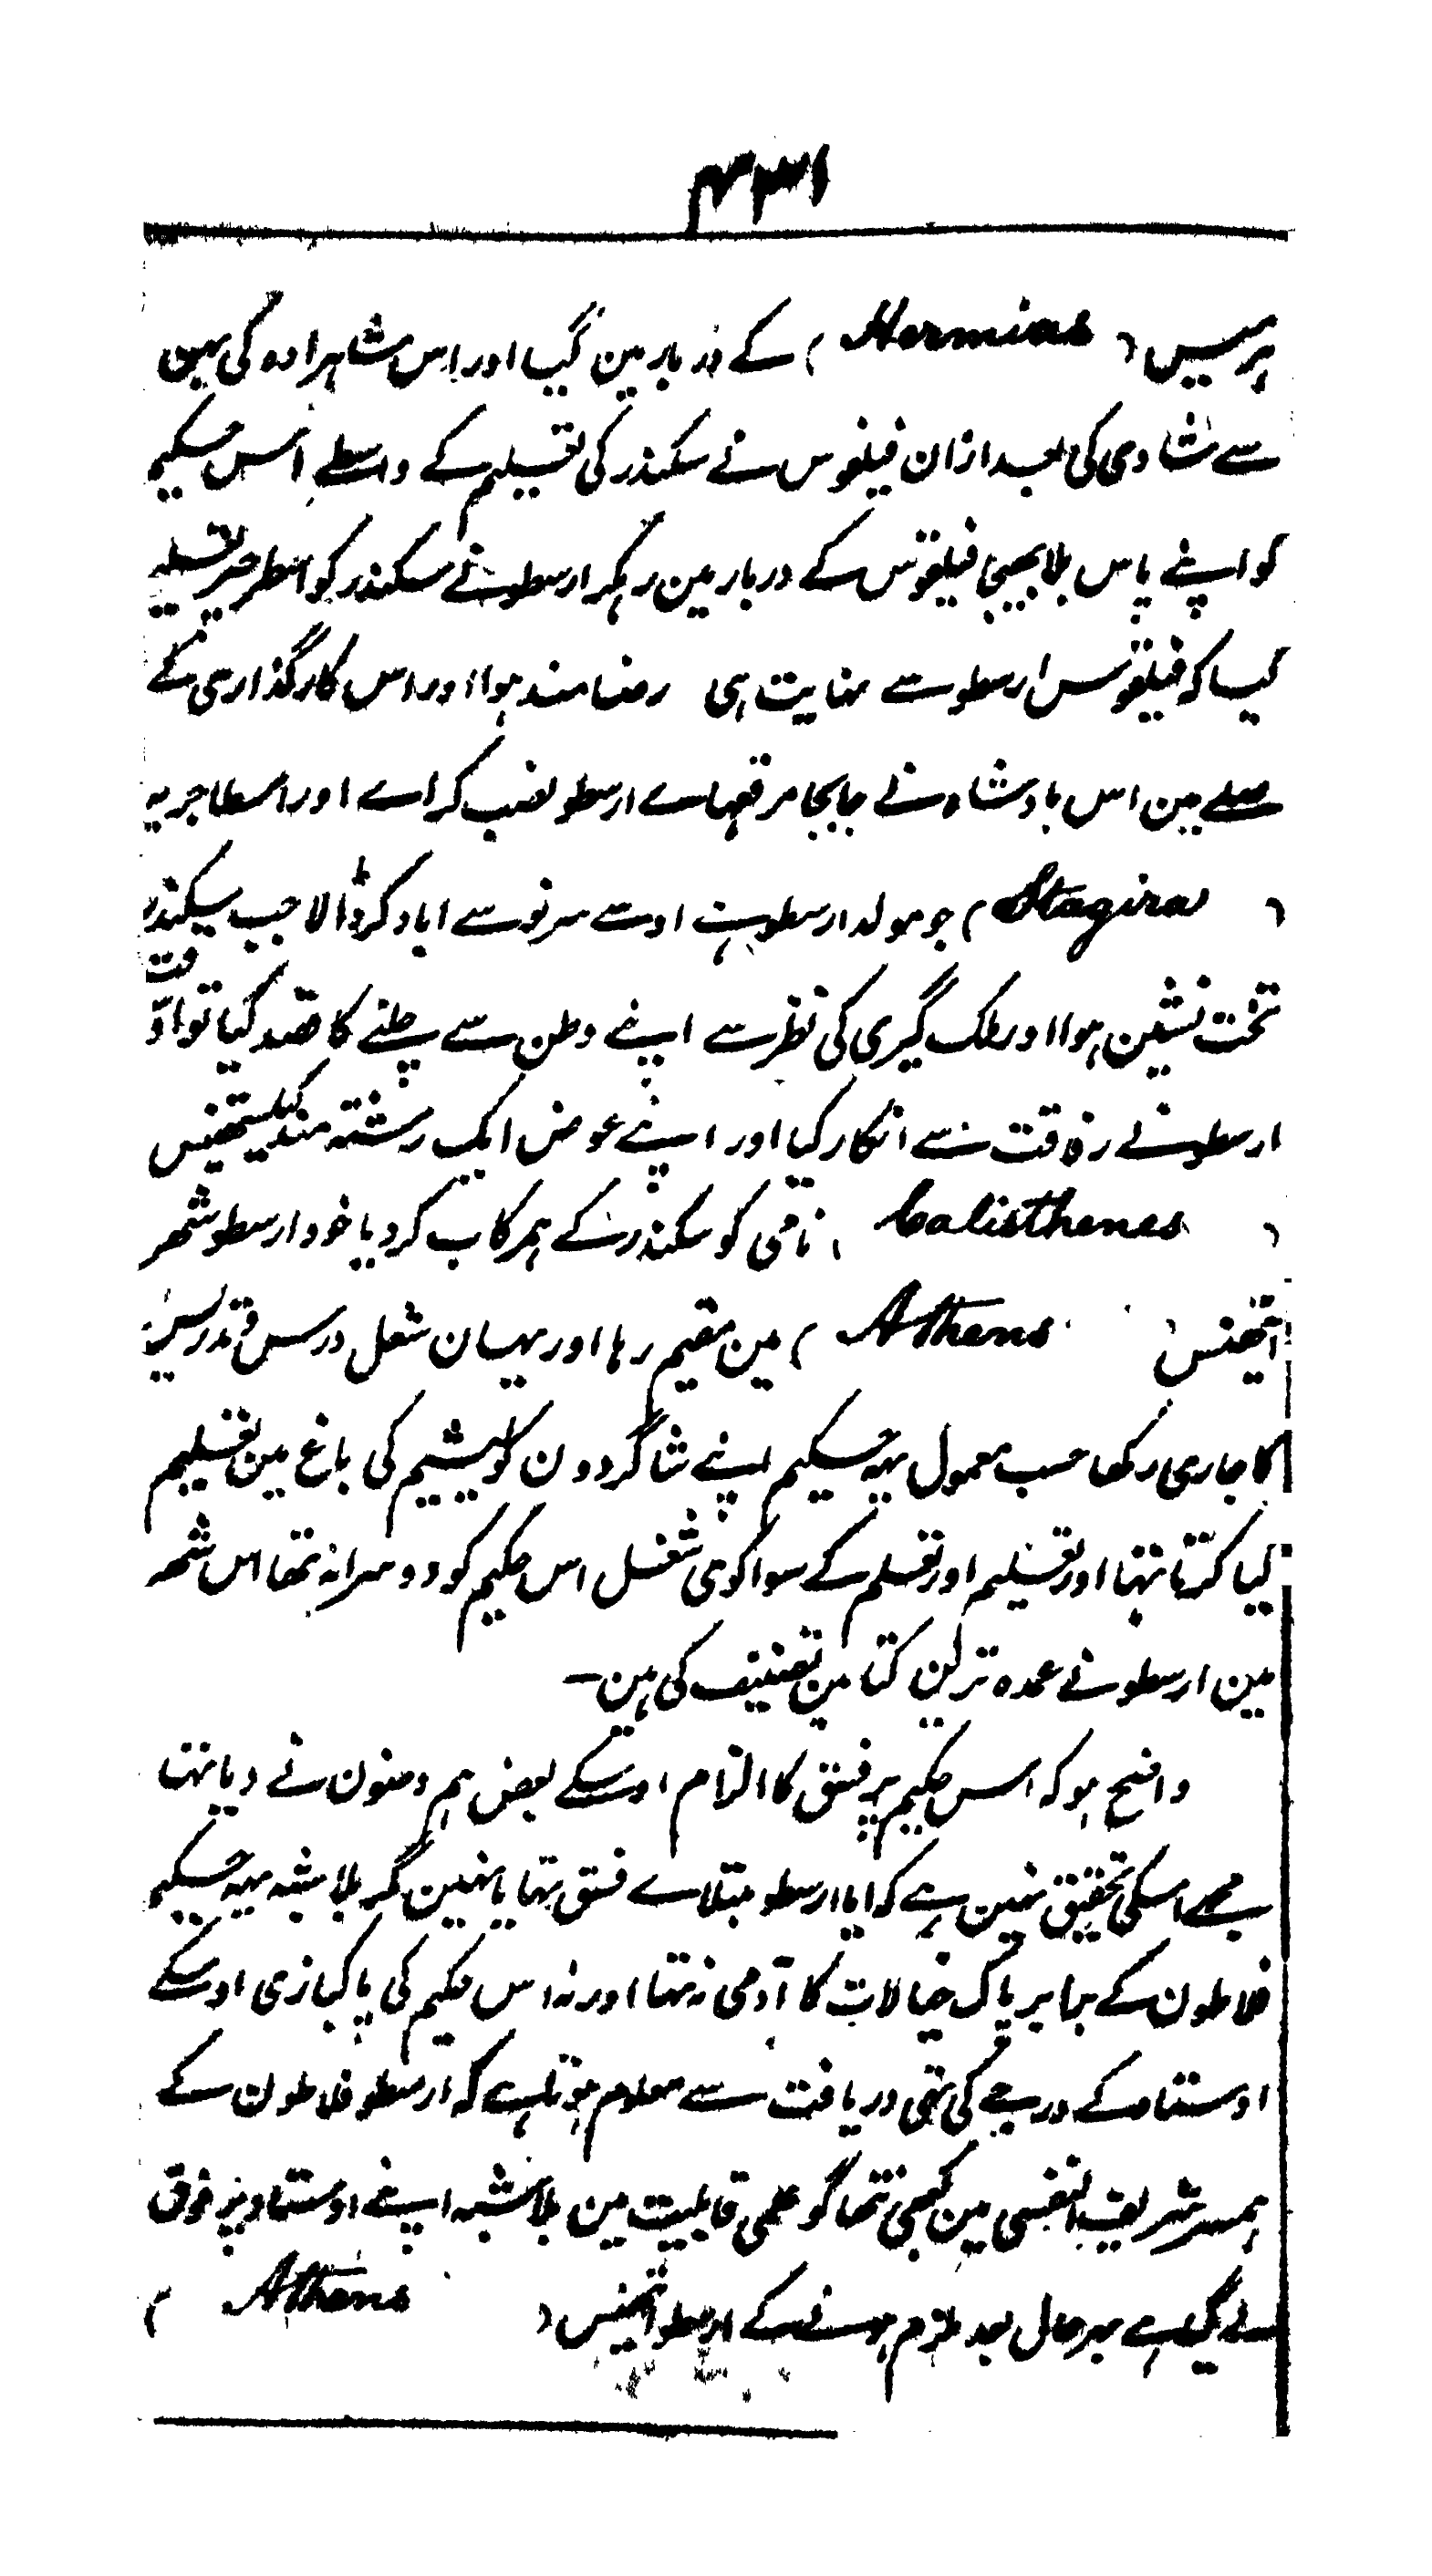 ۴۳۱
ہرمیس (Hermias) کے دربار مین گیا اور اس شاہزادہ کی بہن
سے شادی کی بعد ازان فیلقوس نے سکندر کی تعلیم کے واسطے اس حکیم
کو اپنے پاس بلا بھیجا فیلقوس کے دربار مین رہکر ارسطو نے سکندر کو اسطرحپر تعلیم
کیا کہ فیلقوس ارسطو سے نہایت ہی رضامند ہوا اور اس کارگذاری کے
صلے مین اس بادشاہ نے جابجا مرقعہاے ارسطو نصب کراے اور اسطاجریہ
(Stagira) جو مولد ارسطو ہے اوسے سرنو سے اباد کرڈالا جب سکندر
تخت نشین ہوا اور ملک گیری کی نظر سے اپنے وطن سے چلنے کا قصد کیا تو اوسوقت
ارسطو نے رفاقت سے انکار کیا اور اپنے عوض ایک رشتہ مند کیلستھینس
(Calisthenes) نامی کو سکندر کے ہمرکاب کردیا خود ارسطو شہر
آتھینس (Athens) مین مقیم رہا اور یہان شغل درس و تدریس
کا جاری رکھا حسب معمول یہہ حکیم اپنے شاگردون کو لیشیم کی باغ مین تعلیم
کیا کرتا تہا اور تعلیم اور تعلم کے سوا کوی شغل اس حکیم کو دوسرا نہ تھا اس شہر
مین ارسطو نے عمدہ ترین کتابین تصنیف کی ہین۔
واضح ہو کہ اس حکیم پر فسق کا الزام اوسکے بعض ہم وطنون نے دیا تہا
مجھے اسکی تحقیق نہین ہے کہ ایا ارسطو مبتلاے فسق تہا یا نہین مگر بلا شبہ یہہ حکیم
فلاطون کے برابر پاک خیالات کا آدمی نہ تہا اور نہ اس حکیم کی پاکبازی اوسکے
اوستاد کے درجے کی تہی دریافت سے معلوم ہوتا ہے کہ ارسطو فلاطون کے
ہمسر شریف النفسی مین کبھی نتھا گو علمی قابلیت مین بلا شبہ اپنے اوستاد پر فوق
لے گیا ہے بہرحال بعد ملزم ہونے کے ارسطو اتھینس (Athens)